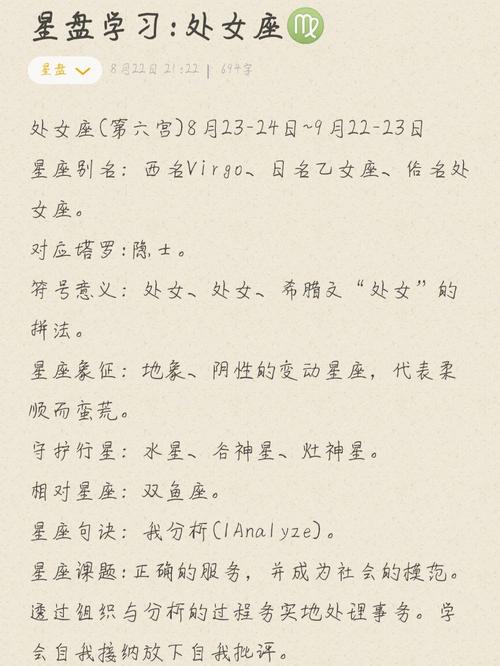 星盘学习:处女座♍
星盘
8月22日 21:22 | 694字
处女座(第六宫)8月23-24日~9月22-23日
星座别名：西名Virgo、日名乙女座、俗名处
女座。
对应塔罗:隐士。
符号意义：处女、处女、希腊文“处女”的
拼法。
星座象征：地象、阴性的变动星座，代表柔
顺而蛮荒。
守护行星：水星、谷神星、灶神星。
相对星座：双鱼座。
星座句诀：我分析(IAnalyze)。
星座课题:正确的服务，并成为社会的模范。
透过组织与分析的过程务实地处理事务。学
会自我接纳放下自我批评。